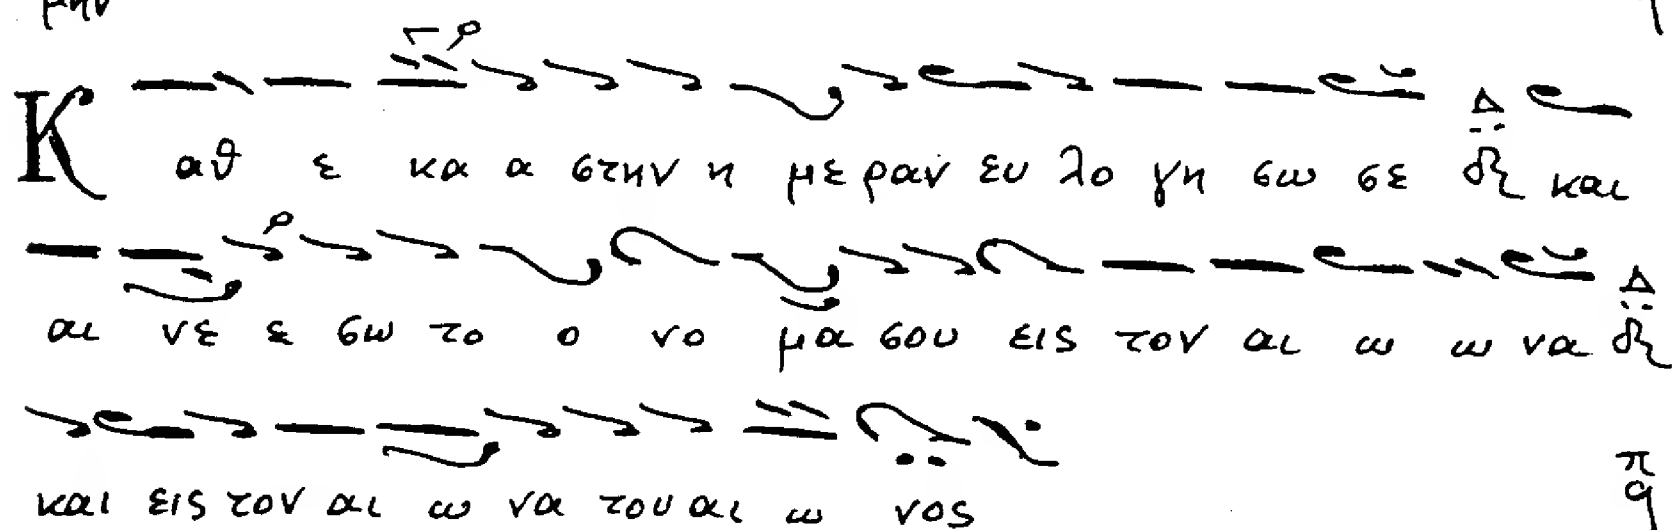 μην
Κ αθ ε κα α στην η με ραν ευ λο γη σω σε δι και
αι νε ε σω το ο νο μα σου εις τον αι ω ω να δι
και εις τον αι ω να του αι ω νος